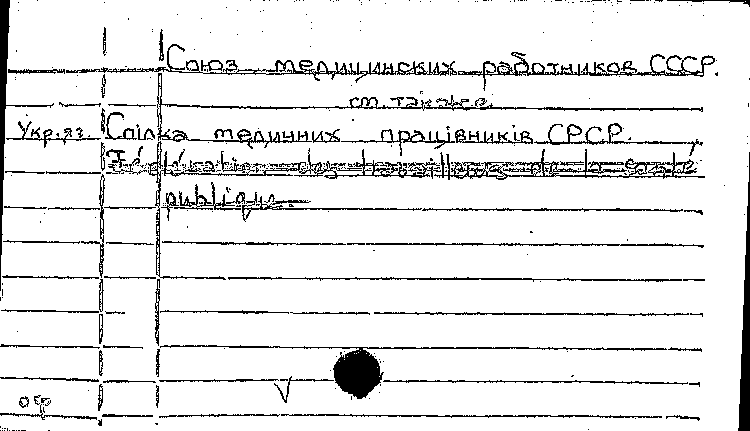 Союз медицинских работников СССР.
см. также
Укр.яз. Спілка медичних працівників СРСР.
Fédération des travailleurs de la santé
publique.
V